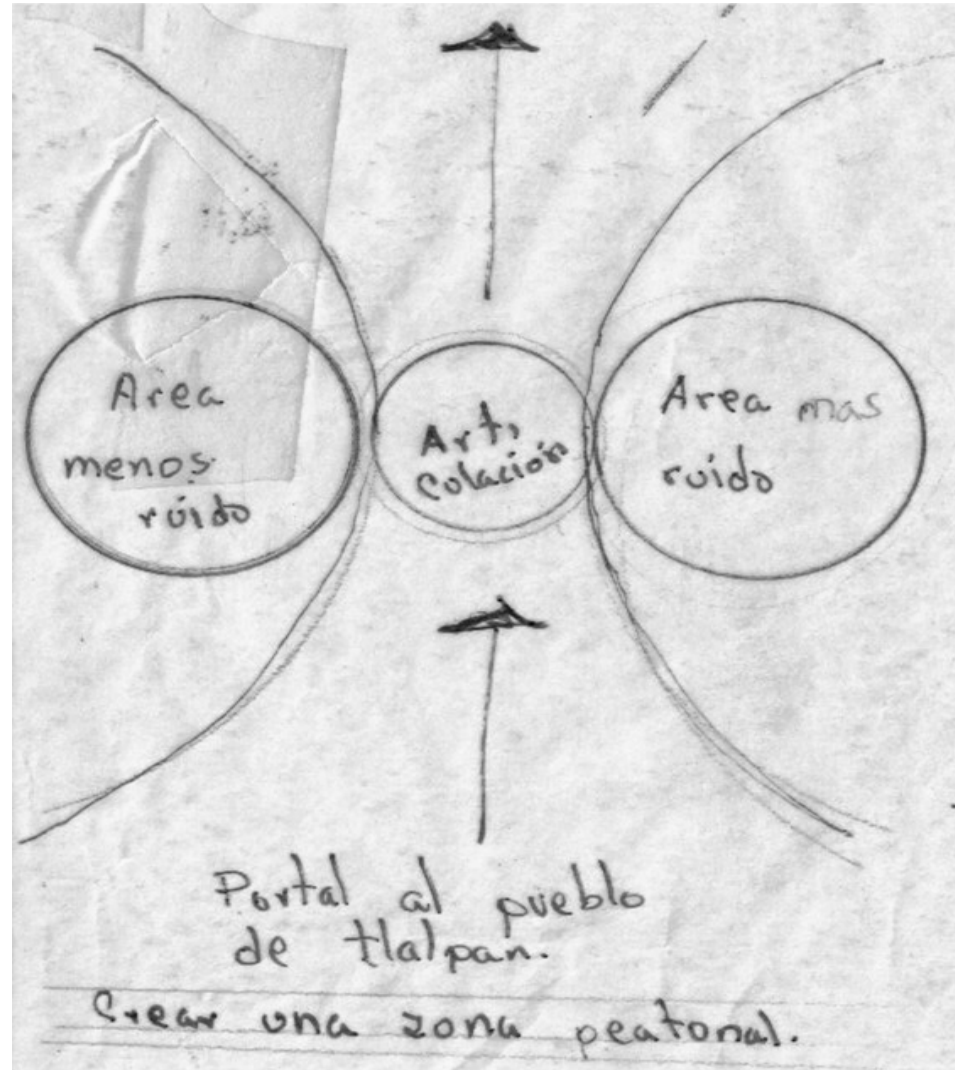 Area
menos
ruido
Arti
culación
Area mas
ruido
Portal al pueblo
de tlalpan.
Crear una zona peatonal.